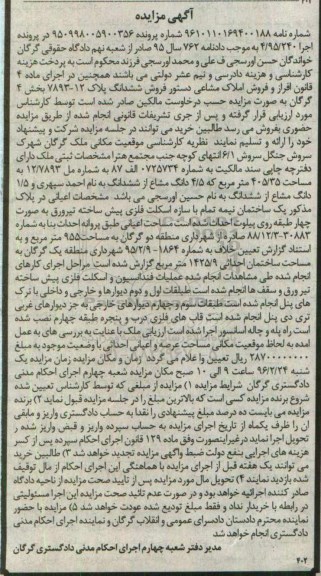 آگهی مزایده
شماره نامه ۹۶۱۰۱۱۰۱۶۹۴۰۰۱۸۸ شماره پرونده ۹۵۰۹۹۸۰۰۵۹۰۰۳۵۶ در پرونده
اجرا ۴/۹۵/۲۴۰ به موجب دادنامه ۷۶۲ سال ۹۵ صادر از شعبه نهم دادگاه حقوقی گرگان
خواندگان حسن اورسجی ف علی و محمد اورسجی فرزند محکوم است به پرداخت هزینه
کارشناسی و هزینه دادرسی و نیم عشر دولتی می باشند همچنین در اجرای ماده ۴
قانون افراز و فروش املاک مشاعی دستور فروش ششدانگ پلاک ۱۲-۷۸۹۳ بخش ۴
گرگان به صورت مزایده حسب درخواست مالکین صادر شده است توسط کارشناس
مورد ارزیابی قرار گرفته و پس از جری تشریفات قانونی انجام شده از طریق مزایده
حضوری بفروش می رسد طالبین خرید می توانند در جلسه مزایده شرکت و پیشنهاد
خود را ارائه و تسلیم نمایند نظریه کارشناسی موقعیت مکانی ملک گرگان شهرک
سروش جنگل سروش ۶/۱ انتهای کوچه جنب مجتمع هترا مشخصات ثبتی ملک دارای
دفترچه چاپی سند مالکیت به شماره ۰۷۲۵۷۳۴ الف ۸۷ به شماره مل ۱۲/۷۸۹۳ به
مساحت ۴۰۵/۳۵ متر مربع که ۴/۵ دانگ مشاع از ششدانگ به نام احمد سپهری و ۱/۵
دانگ مشاع از ششدانگ به نام حسین اورسجی می باشد مشخصات اعیانی در پلاک
مذکور یک ساختمان نیمه تمام با سازه اسکلت فلزی پیش ساخته تیرورق به صورت
چهار طبقه روی پیلوت احداث شده است مساحت اعیانی طبق پروانه احداث بنا به شماره
۸۸/۱۲/۳-۳۰۸۸۳ صادر از شهرداری منطقه دو گرگان به مساحت ۹۵۵ متر مربع و به
استناد گزارش تعیین خلاف به شماره ۱۸۶۴-۹۵/۲/۹ شهرداری منطقه یک گرگان به
مساحت ساختمان احداثی ۱۴۲۵/۹ متر مربع گزارش شده است مراحل اجرای کارهای
انجام شده طی مشاهدات انجام شده عملیات فنداسیون و اسکلت فلزی پیش ساخته
تیر ورق و سقف ها انجام شده است طبقات اول و دوم دیوارها و خارجی و داخلی با ترک
های پنل انجام شده است طبقات سوم و چهارم دیوارهای خارجی به جز دیوارهای غربی
تری دی پنل انجام شده است قاب های فلزی درب و پنجره طبقه چهارم نصب شده
است راه پله و چاله آسانسور اجرا شده است ارزیابی ملک با عنایت به بررسی های به عمل
آمده به لحاظ موقعیت مکانی مساحت عرصه و اعیانی احداثی با وضعیت موجود به مبلغ
ریال تعیین و اعلام می گردد زمان و مکان مزایده زمان مزایده یک
شنبه ۹۶/۲/۲۴ ساعت ۹ الی ۱۰ صبح مکان مزایده شعبه چهارم اجرای احکام مدنی
دادگستری گرگان شرایط مزایده ۱) مزایده از مبلغی که توسط کارشناس تعیین شده
شروع برنده مزایده کسی است که بالاترین مبلغ را در جلسه مزایده قبول نماید ۲) برنده
مزایده می بایست ده درصد مبلغ پیشنهادی را نقدا به حساب دادگستری واریز و مابقی
آن را ظرف یکماه از تاریخ اجرای مزایده به حساب سپرده واریز و قبض واریز شده را
تحویل اجرا نماید در غیر اینصورت وفق ماده ۱۲۹ قانون اجرای احکام سپرده پس از کسر
هزینه های اجرایی بنفع دولت ضبط و آگهی مزایده تجدید خواهد شد ۳) طالبین خرید
می توانند یک هفته قبل از اجرای مزایده با هماهنگی این اجرای احکام از مال توقیف
شده بازدید نمایند ۴) تحویل مال مورد مزایده پس از تایید صحت مزایده از ناحیه دادگاه
صادر کننده اجرائیه خواهد بود و در صورت عدم تائید صحت مزایده این اجرا مسئولیتی
در رابطه با خریدار نداد و فقط مبلغ تودیع شده عودت خواهد شد ۵) مزایده با حضور
نماینده محترم دادستان دادسرای عمومی و انقلاب گرگان و نماینده اجرای احکام مدنی
دادگستری انجام خواهد شد
مدیر دفتر شعبه چهارم اجرای احکام مدنی دادگستری گرگان
۴۰۲